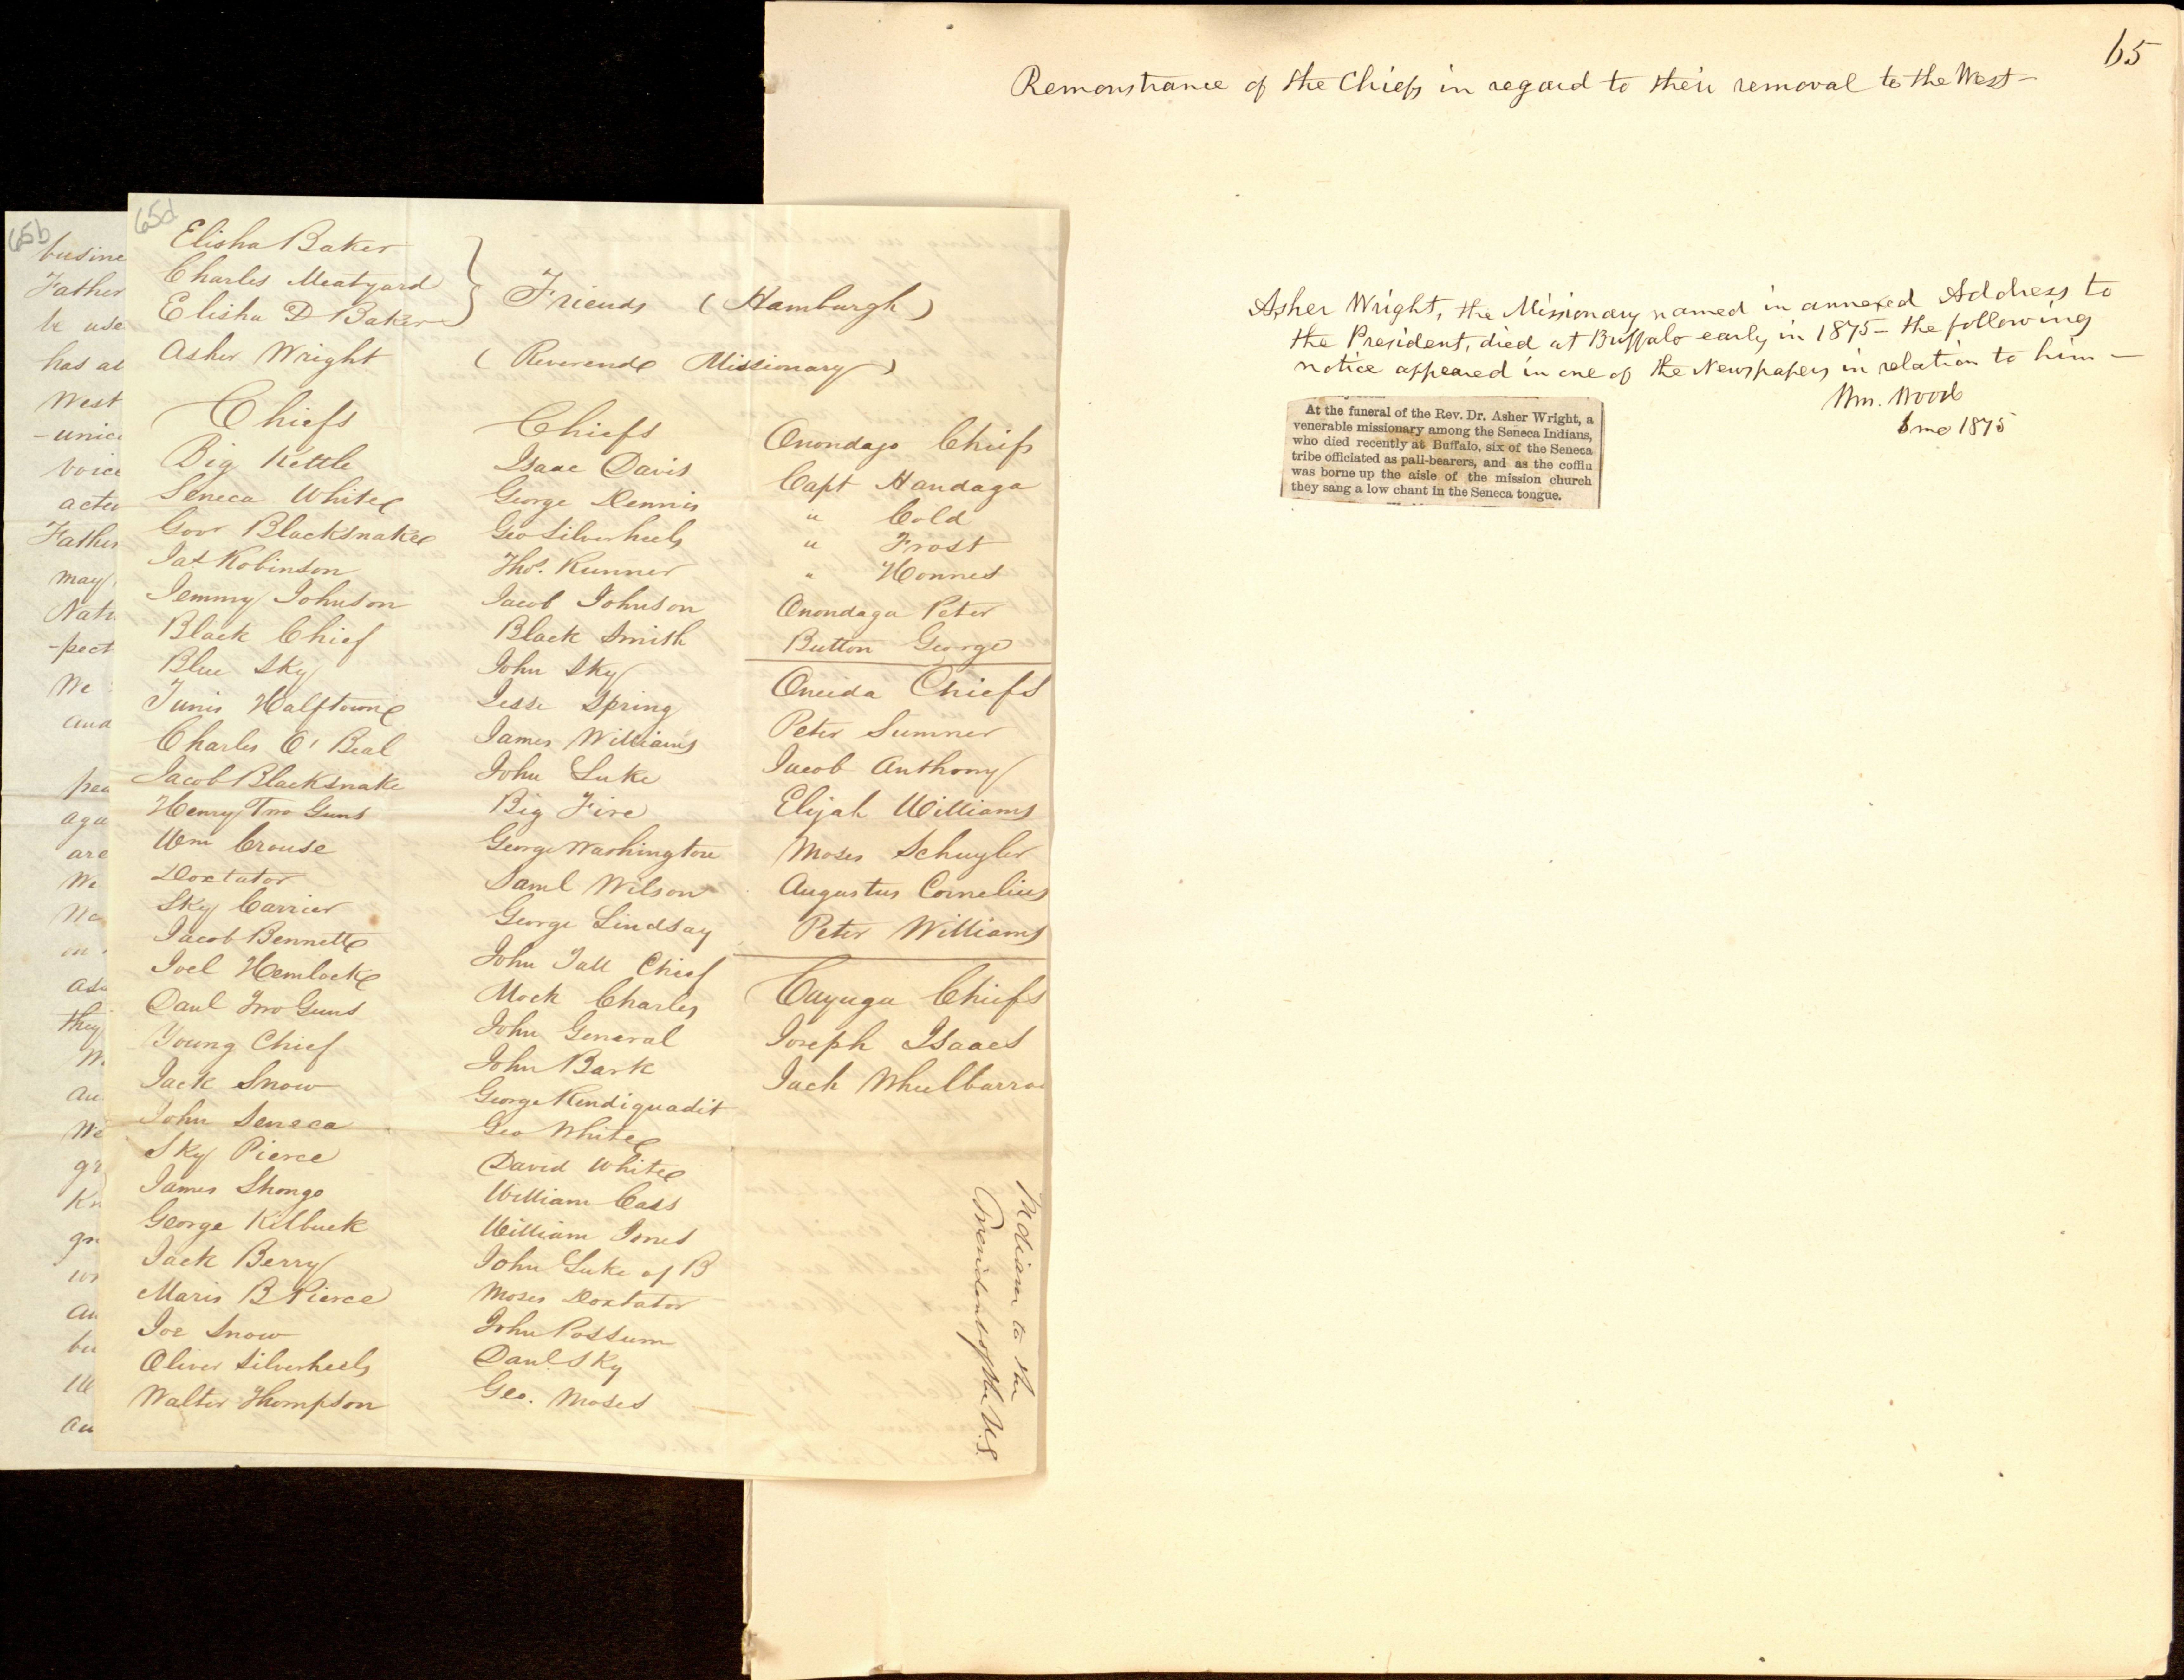 65
Remonstrance of the Chiefs in regard to their removal to the West-
65b
busine
Father
be use
has al
West
-unic
voice
actu
Father
may
Natu
-pect
We
and
pea
aga
are
We
No
in
asu
they
W
au
We
gr
Kn
gr
au
bu
au
65d
Elisha Baker
Charles Meatyard
Elisha D Baker
} Friends (Hamburgh)
Asher Wright (Reverend Missionary)
Chiefs
Big Kettle
Seneca White
Govr Blacksnake
Jas Robinson
Jemmy Johnson
Black Chief
Blue Sky
Junis Halftown
Charles O'Beal
Jacob Blacksnake
Henry Two Guns
Wm Crouse
Doxtator
Sky Carrier
Jacob Bennett
Joel Hemlock
Danl Two Guns
Young Chief
Jack Snow
John Seneca
Sky Pierce
James Shongo
George Kilbuck
Jack Berry
Maris B Pierce
Joe Snow
Oliver Silverheels
Walter Thompson
Chiefs
Isaac Davis
George Dennis
Geo Silverheels
Thos. Runner
Jacob Johnson
Black Smith
John Sky
Jesse Spring
James Williams
John Luke
Big Fire
George Washington
Saml Wilson
George Lindsay
John Tall Chief
Mock Charles
John General
John Bark
George Kendiquadit
Geo White
David White
William Cass
William Jones
John Luke of B
Moses Doxtator
John Possum
Danl. Sky
Geo. Moses
Onondago Chiefs
Capt Handaga
" Cold
" Frost
" Honnes
Onondaga Peter
Button George
Oneida Chiefs
Peter Sumner
Jacob Anthony
Elijah Williams
Moses Schuyler
Augustus Cornelius
Peter Williams
Cayuga Chiefs
Joseph Isaacs
Jack Wheelbarrow
Indians to the
President of the U.S.
Asher Wright, the Missionary named in annexed Address to
the President, died at Buffalo early in 1875- the following
notice appeared in one of the Newspapers in relation to him-
Wm. Wood
6 mo 1875
At the funeral of the Rev. Dr. Asher Wright, a
venerable missionary among the Seneca Indians,
who died recently at Buffalo, six of the Seneca
tribe officiated as pall-bearers, and as the coffin
was borne up the aisle of the mission church
they sang a low chant in the Seneca tongue.